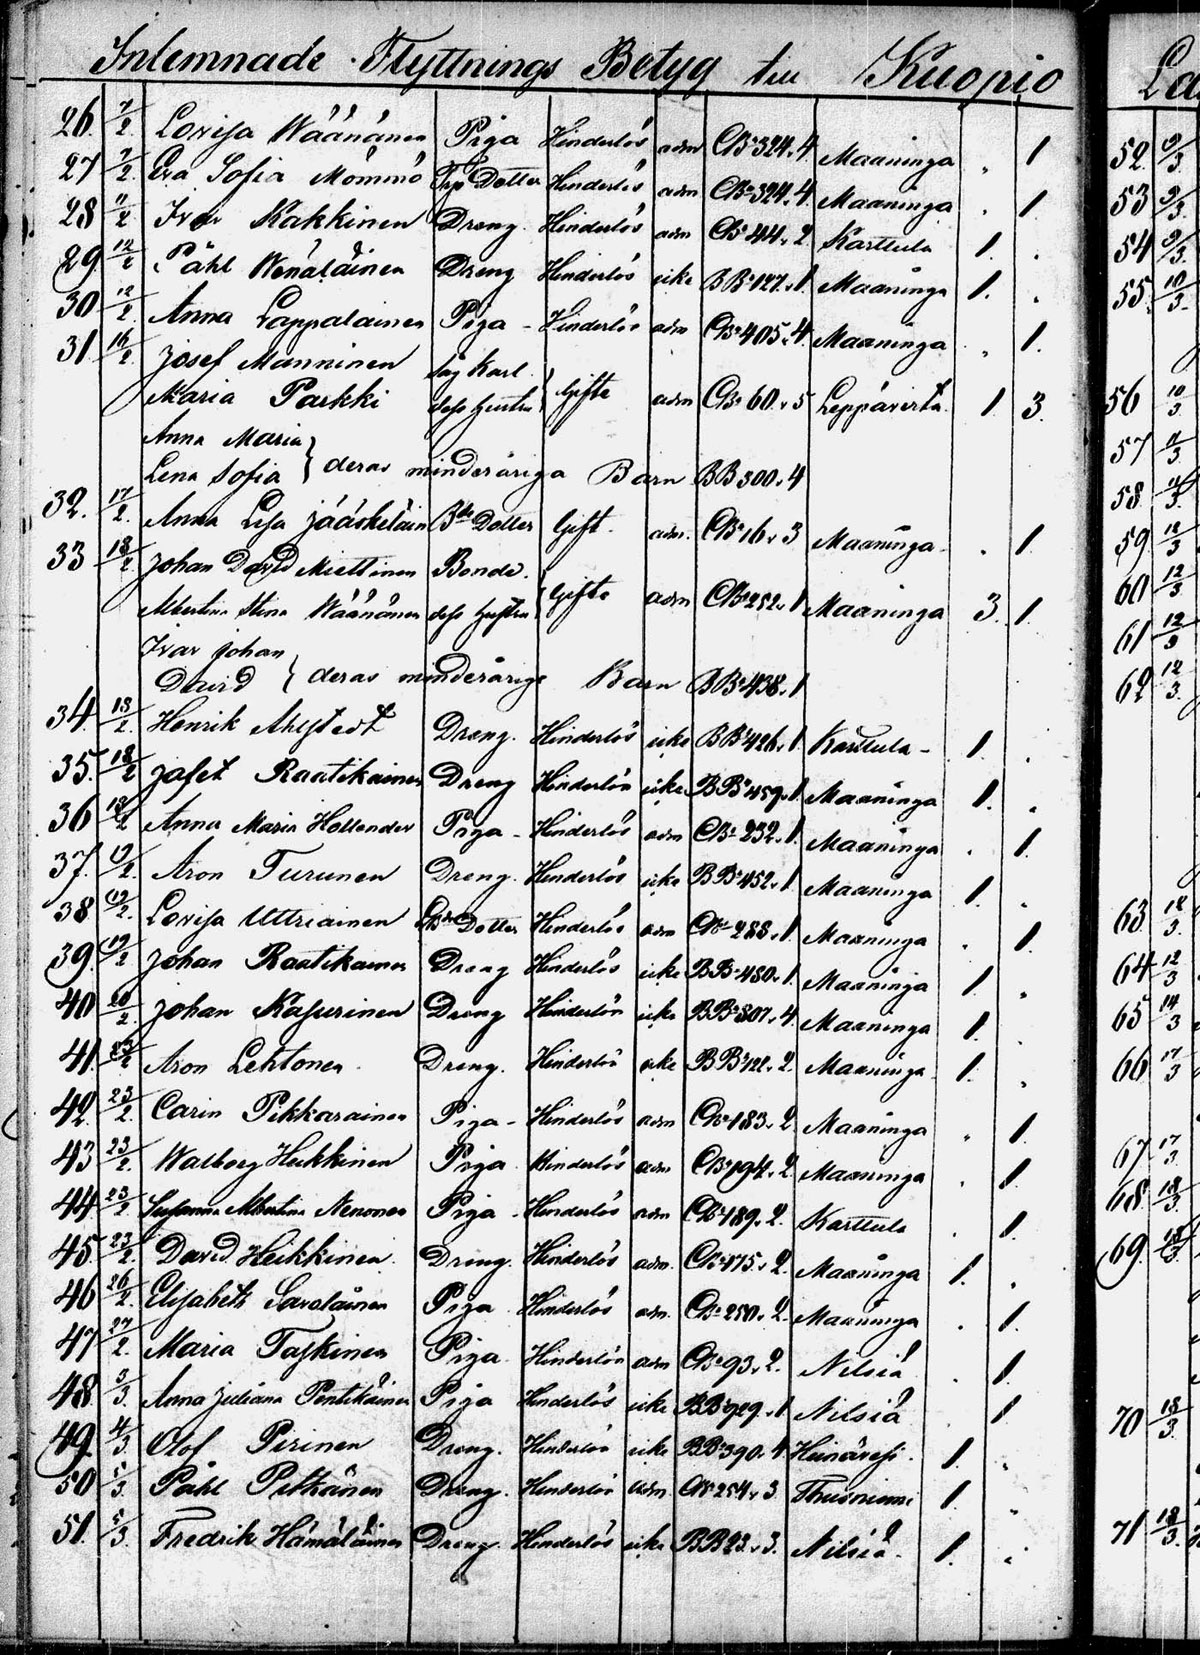 Inlemnade Flyttnings Betyg till Kuopio
26. 7/2. Lovisa Wäänänen Piga Hinderlös adm CB 324. 4 Maaninga . 1
27 7/2. Eva Sofia Mömmö Dotter Hinderlös adm CB 324. 4 Maaninga . 1
28 7/2 Ivar Kakkinen Dreng Hinderlös adm CB 44. 2 Karttula 1 .
29. 12/2 Påhl Wenäläinen Dreng Hinderlös icke BB 127. 1. Maaninga 1. .
30 12/2. Anna Lappalainen Piga - Hinderlös adm CB 405. 4 Maaninga . 1.
31 16/2 Josef Manninen Karl
Maria Parkki dess hustru } Gifte adm CB 60. 5 Leppävirta 1 3.
Anna Maria
Lena Sofia } deras minderåriga Barn BB 500. 4
32. 17/2. Anna Lisa Jääskeläin Dotter Gift. adm. CB 16. 3 Maaninga . 1.
33 18/2 Johan David Miettinen Bonde.
Albertina Stina Wäänänen dess hustru } Gifte adm CB 252. 1 Maaninga 3. 1.
Ivar Johan
David } deras minderårige Barn BB 438. 1
34. 18/2 Henrik Ahlstedt Dreng. Hinderlös icke BB 426. 1. Karttula - 1. .
35. 18/2 Jafet Raatikainen Dreng Hinderlös icke BB 459. 1. Maaninga 1. .
36 18/2 Anna Maria Hollander Piga - Hinderlös adm CB 232. 1. Maaninga . 1.
37. 19/2. Aron Turunen Dreng. Hinderlös icke BB 452. 1 Maaninga 1. .
38 19/2. Lovisa Uttriainen Dotter Hinderlös adm CB 288. 1. Maaninga . 1.
39. 19/2 Johan Raatikainen Dreng Hinderlös icke BB 480. 1. Maaninga 1. .
40 20/2. Johan Kasurinen Dreng Hinderlös icke BB 807. 4. Maaninga 1. .
41. 23/2 Aron Lehtonen Dreng. Hinderlös icke BB 122. 2. Maaninga 1. .
42. 23/2. Carin Pikkarainen Piga - Hinderlös adm CB 183. 2. Maaninga . 1.
43 23/2. Walborg Heikkinen Piga Hinderlös adm CB 194. 2. Maaninga . 1.
44. 23/2 Susanna Albertina Nenonen Piga - Hinderlös adm CB 189. 2. Karttula . 1.
45. 23/2. David Heikkinen Dreng. Hinderlös adm. CB 175. 2. Maaninga 1. .
46 26/2. Elisabeth Savolainen Piga Hinderlös adm. CB 250. 2. Maaninga . 1.
47 27/2. Maria Taskinen Piga Hinderlös adm CB 93. 2. Nilsiä . 1.
48. 3/3. Anna Juliana Pentikäinen Piga Hinderlös icke BB 929. 1 Nilsiä . 1
49. 4/3. Olof Pirinen Dreng. Hinderlös icke BB 390. 4 Heinävesi. 1. .
50 5/3. Påhl Pitkänen Dreng. Hinderlös adm CB 254. 3. Thusniemi 1. .
51. 5/3. Fredrik Hämäläinen Dreng. Hinderlös icke BB 23. 3. Nilsiä. 1. .
La
52. 9/3
53 9/3.
54 9/3.
55. 10/3.
56 10/3
57 11/3
58 11/3
59 12/3
60 12/3
61 12/3
62 12/3.
63. 12/3.
64 12/3
65 14/3
66 17/3
67. 17/3
68. 18/3.
69. 18/3.
70 18/3.
71 18/3.